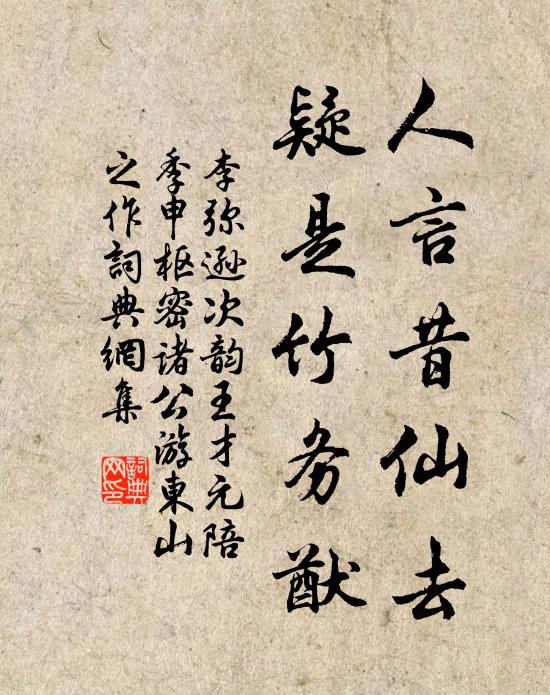 人言昔仙去
疑是竹务猷
李弥逊次韵王才元陪
季申枢密诸公游東山
之作詞典網集
詞典
网印